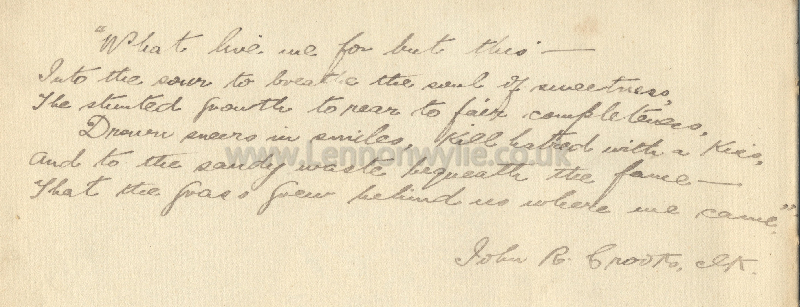 "What live we for but this —
Into the sour to breathe the soul of sweetness,
The stunted growth to rear to fair completeness,
Drown sneers in smiles, Kill hatred with a Kiss,
www.Lennonwylie.co.uk
And to the sandy waste bequeath the fame —
That the grass grew behind us where we came."
John R. Crooks,